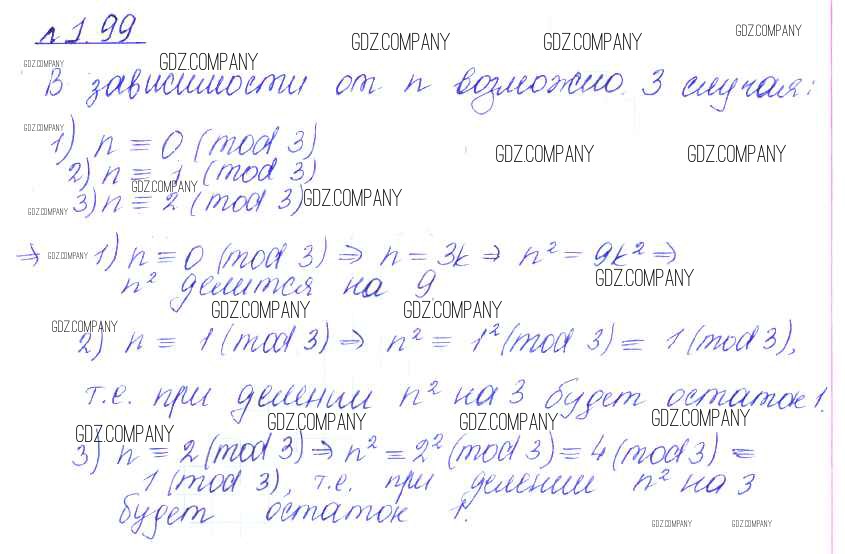 № 1.99
GDZ.COMPANY GDZ.COMPANY GDZ.COMPANY
GDZ.COMPANY GDZ.COMPANY
В зависимости от n возможно 3 случая:
GDZ.COMPANY
1) n ≡ 0 (mod 3)
GDZ.COMPANY GDZ.COMPANY
2) n ≡ 1 (mod 3)
GDZ.COMPANY
3) n ≡ 2 (mod 3)
GDZ.COMPANY GDZ.COMPANY
⇒ GDZ.COMPANY 1) n ≡ 0 (mod 3) ⇒ n = 3k ⇒ n² = 9k² ⇒
GDZ.COMPANY
n² делится на 9
GDZ.COMPANY GDZ.COMPANY
GDZ.COMPANY
2) n ≡ 1 (mod 3) ⇒ n² ≡ 1² (mod 3) ≡ 1 (mod 3),
т.е. при делении n² на 3 будет остаток 1.
GDZ.COMPANY GDZ.COMPANY GDZ.COMPANY GDZ.COMPANY
3) n ≡ 2 (mod 3) ⇒ n² = 2² (mod 3) = 4 (mod 3) =
1 (mod 3), т.е. при делении n² на 3
будет остаток 1.
GDZ.COMPANY GDZ.COMPANY